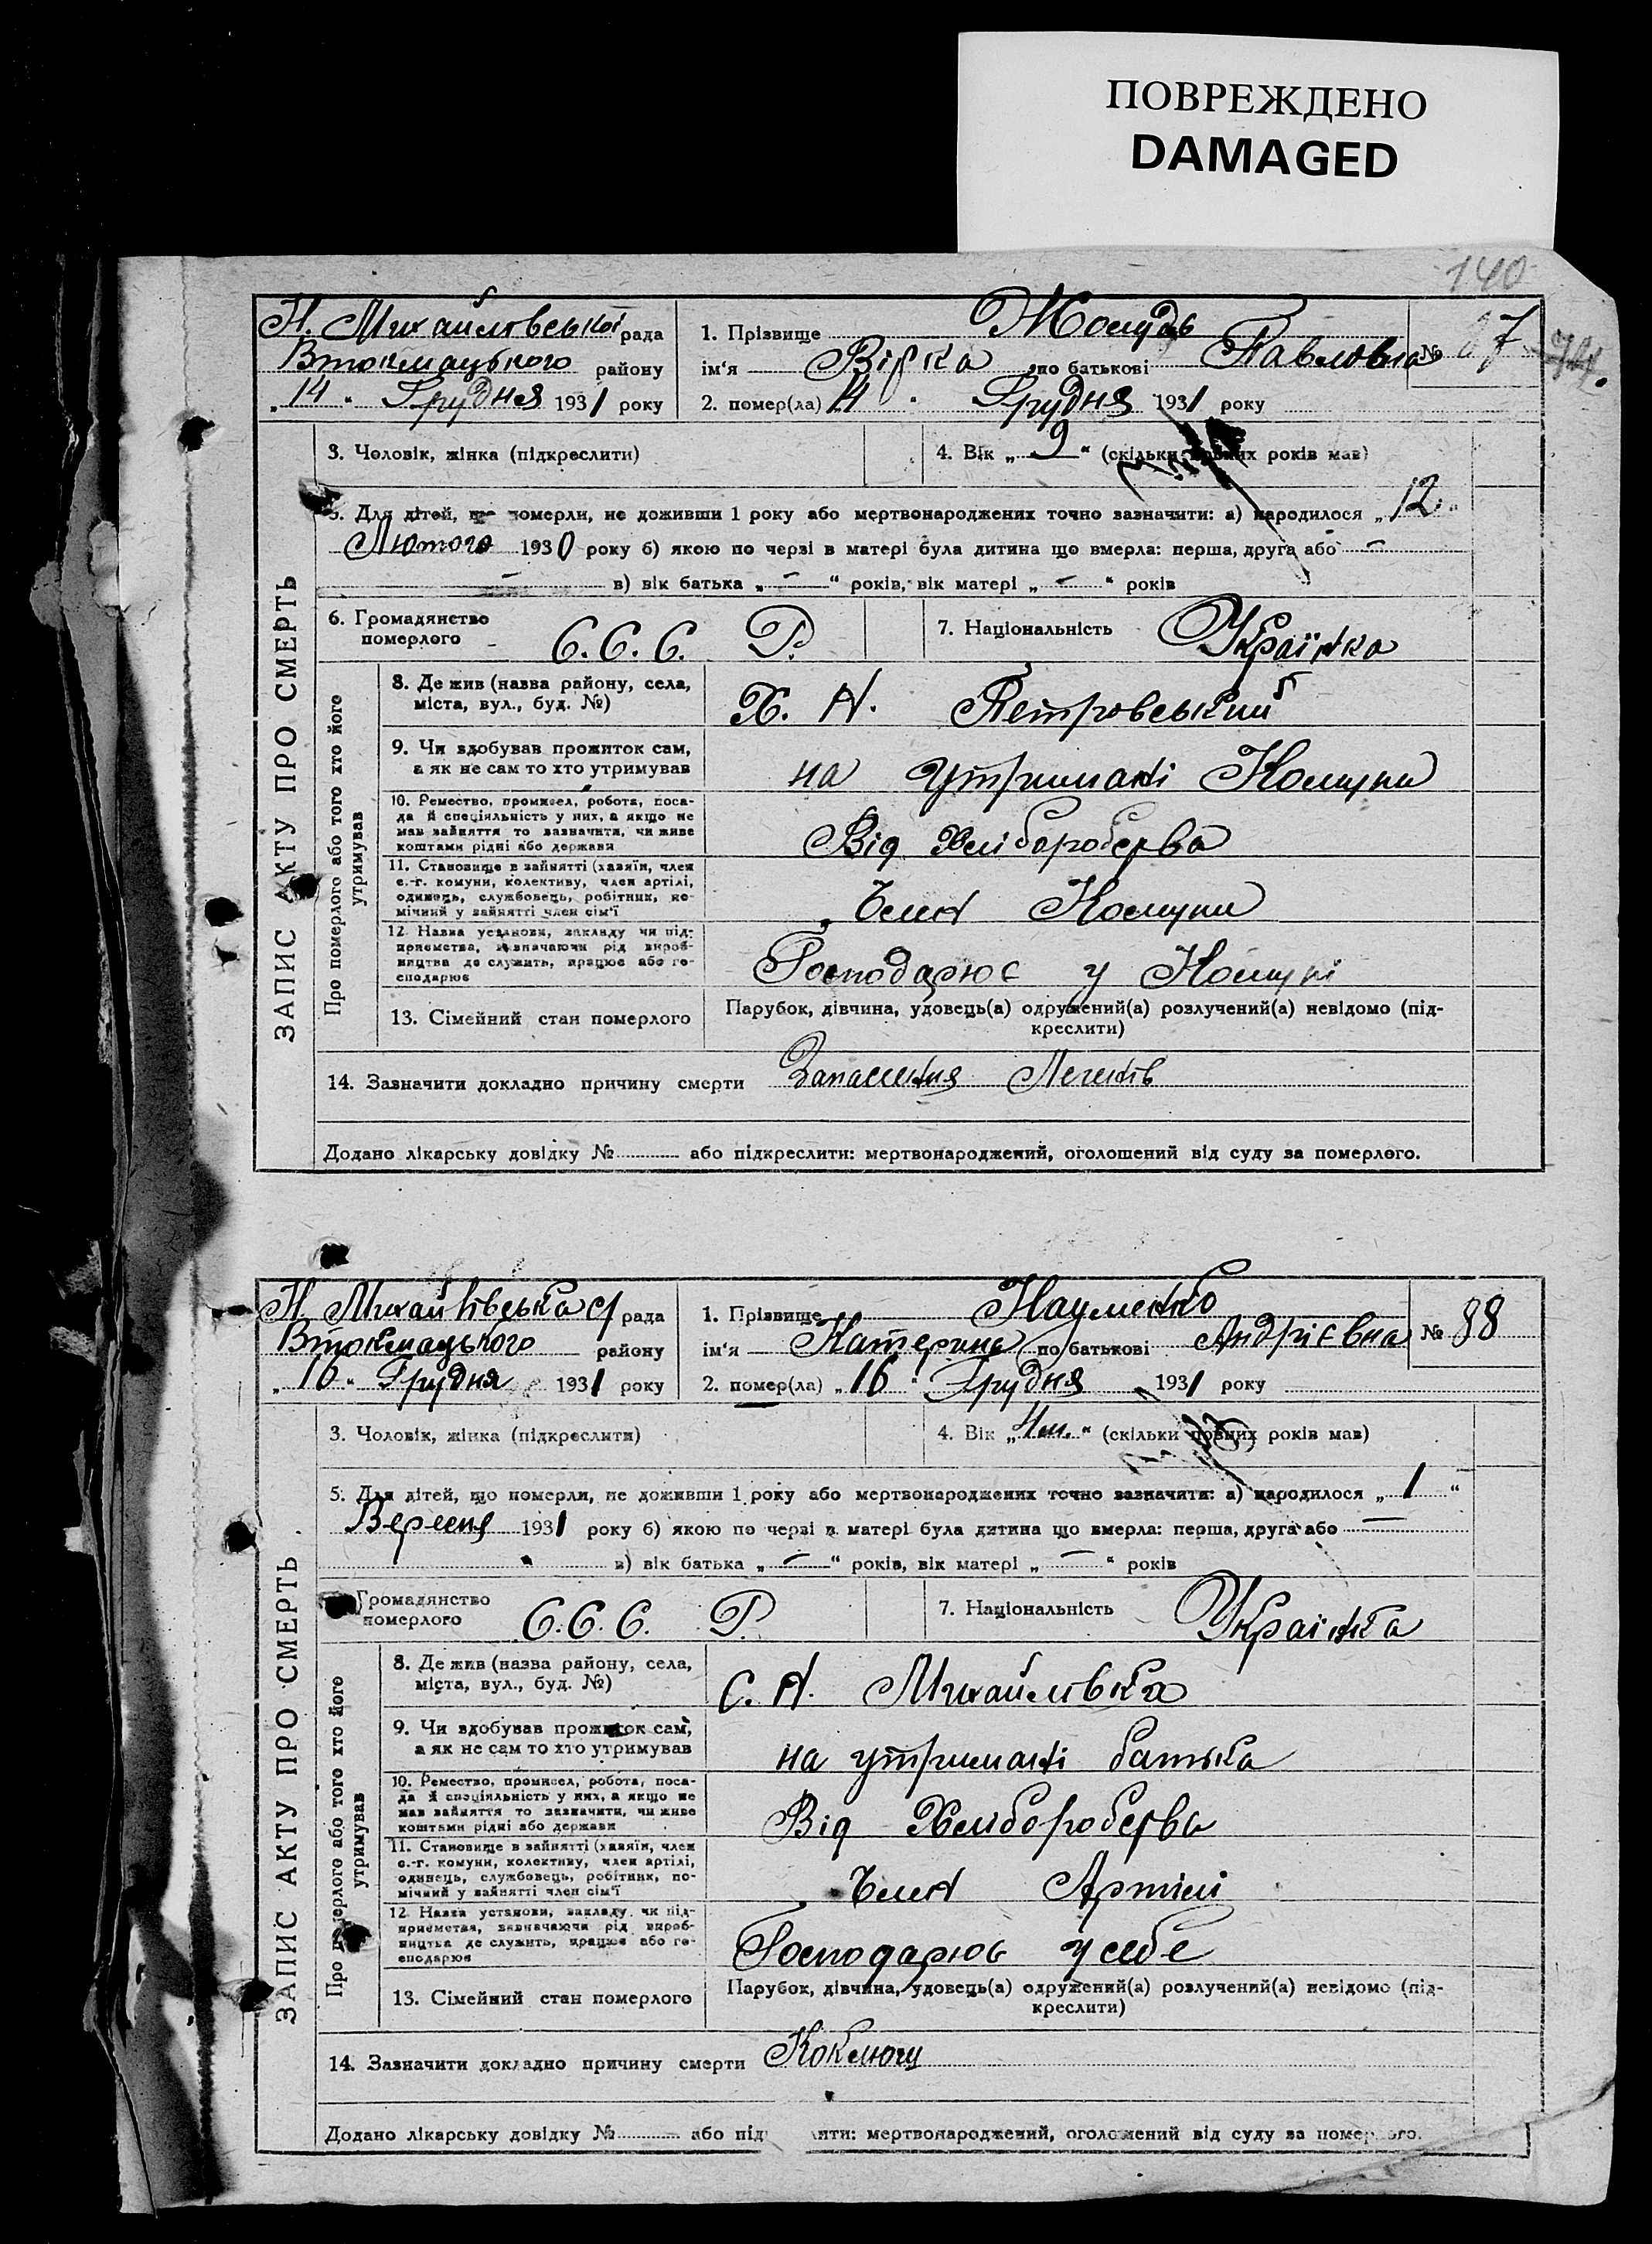 ПОВРЕЖДЕНО
DAMAGED
140
Н. Михайлівської рада
Втокмацького району
„14“ Грудня 1931 року
1. Прізвище
ім‘я Вірка по батькові Павловна
№ 87
2. помер(ла) 14 Грудня 1931 року
3. Чоловік, жінка (підкреслити)
4. Вік „9“ (скільки повних років мав)
5. Для дітей, що померли, не доживши 1 року або мертвонароджених точно зазначити: а) народилося „12“
Лютого 1930 року б) якою по черзі в матері була дитина що вмерла: перша, друга або —
— в) вік батька „—“ років, вік матері „—“ років
6. Громадянство
померлого
С.С.С. Р.
7. Національність Українка
ЗАПИС АКТУ ПРО СМЕРТЬ
Про померлого або того хто його
утримував
8. Де жив (назва району, села,
міста, вул., буд. №)
Х. Н. Петровський
9. Чи здобував прожиток сам,
а як не сам то хто утримував
на утриманні Комуни
10. Ремество, промисел, робота, поса-
да й спеціяльність у них, а якщо не
мав зайняття то зазначити, чи живе
коштами рідні або держави
Від Хліборобства
11. Становище в зайнятті (хазяїн, член
с.-г. комуни, колективу, член артілі,
одинець, службовець, робітник, по-
мічний у зайнятті член сім‘ї
Член Комуни
12. Назва установи, закладу чи під-
приємства, зазначаючи рід вироб-
ництва де служить, працює або го-
сподарює
Господарює у Комуні
13. Сімейний стан померлого
Парубок, дівчина, удовець(а) одружений(а) розлучений(а) невідомо (під-
креслити)
14. Зазначити докладно причину смерти Запалення Легенів
Додано лікарську довідку № або підкреслити: мертвонароджений, оголошений від суду за померлого.
Н. Михайлівська с/рада
Втокмацького району
„16“ Грудня 1931 року
1. Прізвище Науменко
ім‘я Катерина по батькові Андрієвна
№ 88
2. помер(ла) „16“ Грудня 1931 року
3. Чоловік, жінка (підкреслити)
4. Вік „4м.“ (скільки повних років мав)
5. Для дітей, що померли, не доживши 1 року або мертвонароджених точно зазначити: а) народилося „1“
Вересня 1931 року б) якою по черзі в матері була дитина що вмерла: перша, друга або —
в) вік батька „—“ років, вік матері „—“ років
Громадянство
померлого
С.С.С. Р.
7. Національність Українка
ЗАПИС АКТУ ПРО СМЕРТЬ
Про померлого або того хто його
утримував
8. Де жив (назва району, села,
міста, вул., буд. №)
с. Н. Михайлівка
9. Чи здобував прожиток сам,
а як не сам то хто утримував
на утриманні батька
10. Ремество, промисел, робота, поса-
да й спеціяльність у них, а якщо не
мав зайняття то зазначити, чи живе
коштами рідні або держави
Від Хліборобства
11. Становище в зайнятті (хазяїн, член
с.-г. комуни, колективу, член артілі,
одинець, службовець, робітник, по-
мічний у зайнятті член сім‘ї
Член Артілі
12. Назва установи, закладу чи під-
приємства, зазначаючи рід вироб-
ництва де служить, працює або го-
сподарює
Господарює у себе
13. Сімейний стан померлого
Парубок, дівчина, удовець(а) одружений(а) розлучений(а) невідомо (під-
креслити)
14. Зазначити докладно причину смерти Коклюш
Додано лікарську довідку № або під ити: мертвонароджений, оголошений від суду за померлого.